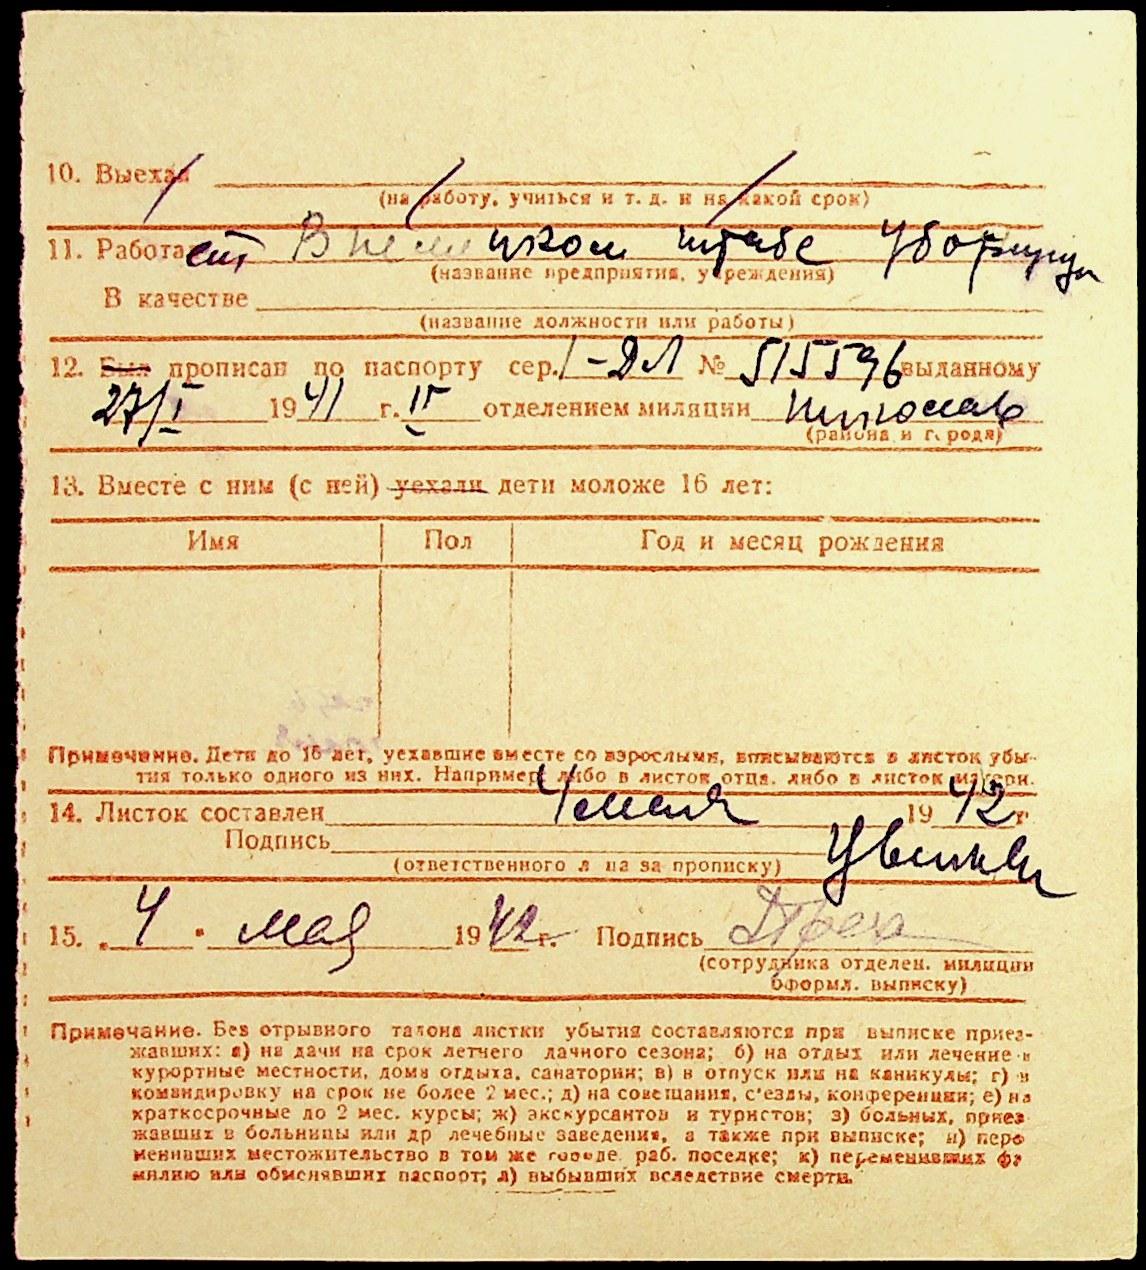 10. Выехал
(на работу, учиться и т. д. и на какой срок)
11. Работает В немецком штабе Уборщица
(название предприятия, учреждения)
В качестве
(название должности или работы)
12. Был прописан по паспорту сер. I-ДЛ № 515596 выданному
27/I 1941 г. IV отделением милиции
(района и города)
13. Вместе с ним (с ней) уехали дети моложе 16 лет:
Имя Пол Год и месяц рождения
Примечание. Дети до 16 лет, уехавшие вместе со взрослыми, вписываются в листок убы-
тия только одного из них. Например либо в листок отца, либо в листок матери.
14. Листок составлен 4 мая 1942 г.
Подпись
(ответственного лица за прописку)
15. „4" мая 1942 г. Подпись
(сотрудника отделен. милиции
оформл. выписку)
Примечание. Без отрывного талона листки убытия составляются при выписке приез-
жавших: а) на дачи на срок летнего дачного сезона; б) на отдых или лечение в
курортные местности, дома отдыха, санатории; в) в отпуск или на каникулы; г) в
командировку на срок не более 2 мес.; д) на совещания, с'езды, конференции; е) на
краткосрочные до 2 мес. курсы; ж) экскурсантов и туристов; з) больных, приез-
жавших в больницы или др лечебные заведения, а также при выписке; и) пере
менивших местожительство в том же городе, раб. поселке; к) переменивших фа
милию или обменявших паспорт; л) выбывших вследствие смерти.